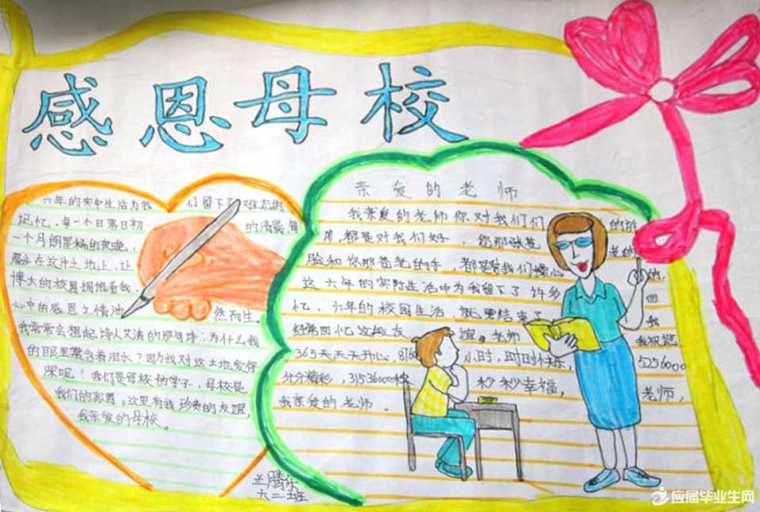 感恩母校
六年的实中生活为我们留下了难忘的
记忆,每一个日第日初的清晨,每
一个月朗星稀的夜晚,
在这片土地上,让
博大的校園拥抱着我,
心中的感恩之情油然而生,
我常常会想起,诗人艾清的那句诗:为什么我
的眼里常含着泪水?因为我对这土地爱得
深呢!我们是母校的学子,母校是
我们的家園,这里有我珍贵的友谊,
我亲爱的母校。
亲爱的老师
我亲爱的老师你对我们们的
都是对我们好,您那
脸和您那
这六年的实际生活中为我留下了许多回
忆,六年的校园生活,就要结束了,我
经常回忆这段友谊。老师,我祝您
365天天天开心,8760小时,时时快乐,525600
分分精彩,31536000秒,秒秒幸福,老师,
我亲爱的老师。
六二班
应届毕业生网